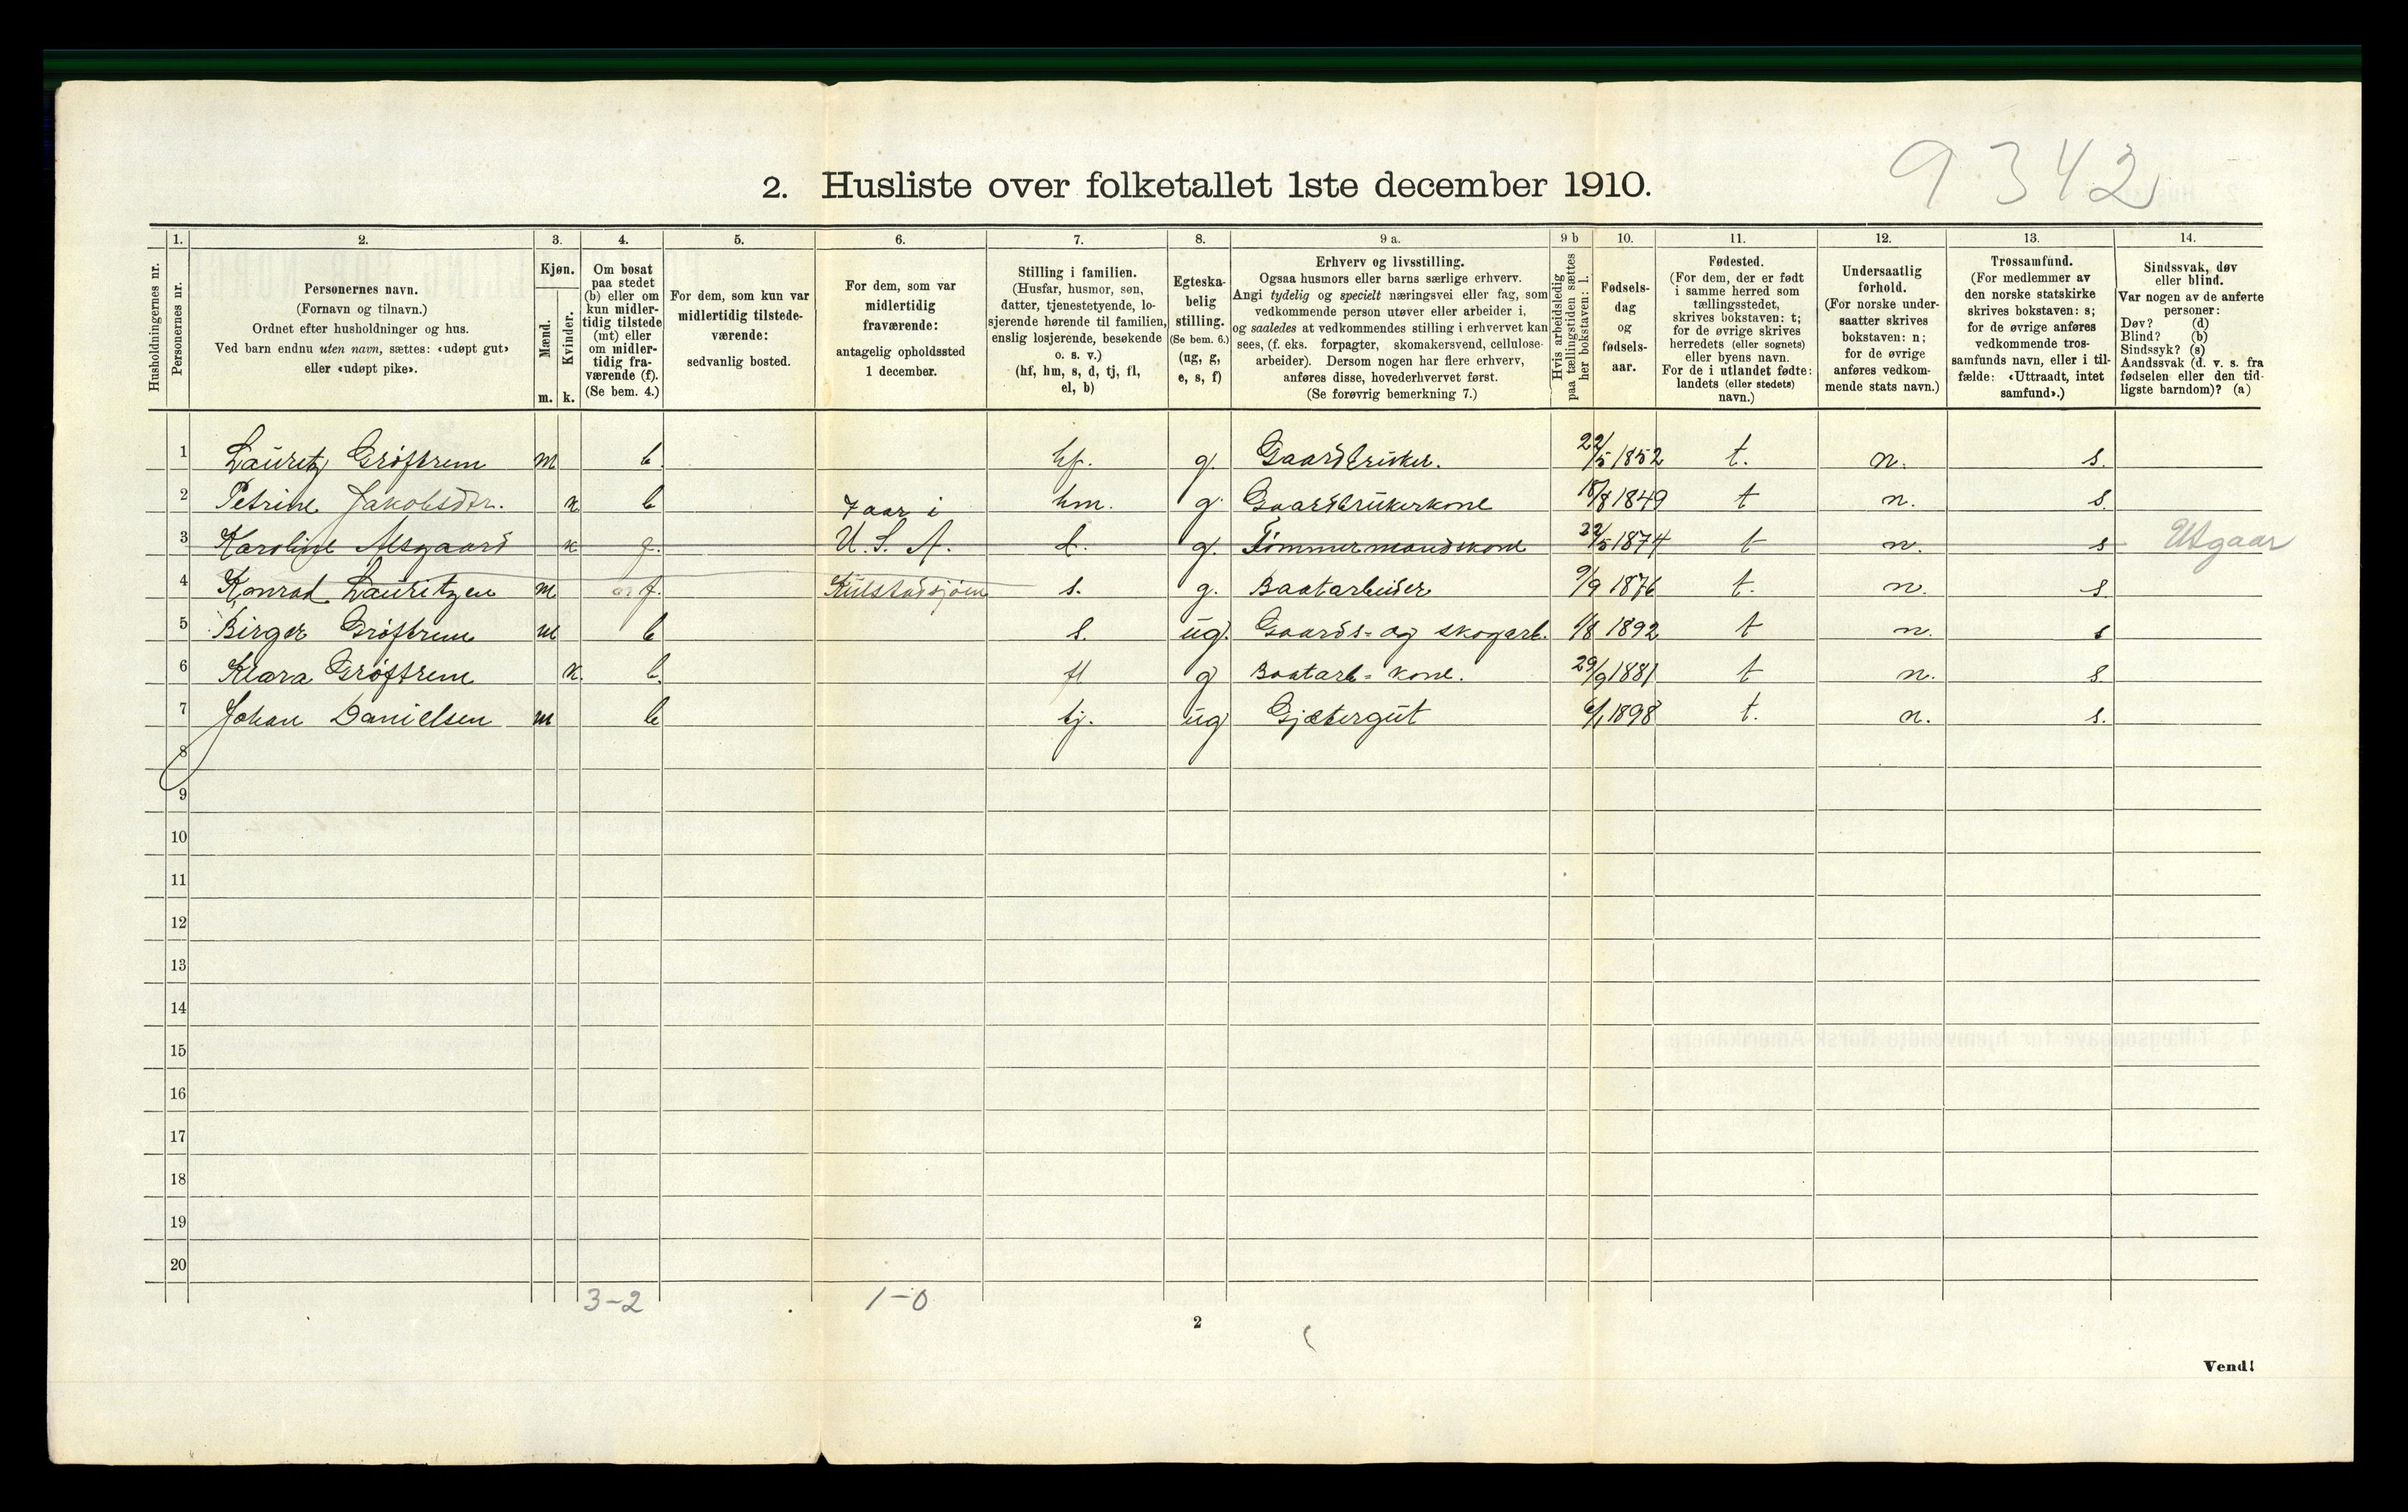 9 342
2. Husliste over folketallet 1ste december 1910.
Husholdningernes nr.
1.
Personernes nr.
2.
Personernes navn.
(Fornavn og tilnavn.)
Ordnet efter husholdninger og hus.
Ved barn endnu uten navn, sættes: «udøpt gut»
eller «udøpt pike».
3.
Kjøn.
Mænd.
Kvinder.
m. k.
4.
Om bosat
paa stedet
(b) eller om
kun midler-
tidig tilstede
(mt) eller
om midler-
tidig fra-
værende (f).
(Se bem. 4.)
5.
For dem, som kun var
midlertidig tilstede-
værende:
sedvanlig bosted.
6.
For dem, som var
midlertidig
fraværende:
antagelig opholdssted
1 december.
7.
Stilling i familien.
(Husfar, husmor, søn,
datter, tjenestetyende, lo-
sjerende hørende til familien,
enslig losjerende, besøkende
o. s. v.)
(hf, hm, s, d, tj, fl,
el, b)
8.
Egteska-
belig
stilling.
(Se bem. 6.)
(ug, g,
e, s, f)
9 a.
Erhverv og livsstilling.
Ogsaa husmors eller barns særlige erhverv.
Angi tydelig og specielt næringsvei eller fag, som
vedkommende person utøver eller arbeider i,
og saaledes at vedkommendes stilling i erhvervet kan
sees, (f. eks. forpagter, skomakersvend, cellulose-
arbeider). Dersom nogen har flere erhverv,
anføres disse, hovederhvervet først.
(Se forøvrig bemerkning 7.)
9 b
Hvis arbeidsledig
paa tællingstiden sættes
her bokstaven: l.
10.
Fødsels-
dag
og
fødsels-
aar.
11.
Fødested.
(For dem, der er født
i samme herred som
tællingsstedet,
skrives bokstaven: t;
for de øvrige skrives
herredets (eller sognets)
eller byens navn.
For de i utlandet fødte:
landets (eller stedets)
navn.)
12.
Undersaatlig
forhold.
(For norske under-
saatter skrives
bokstaven: n;
for de øvrige
anføres vedkom-
mende stats navn.)
13.
Trossamfund.
(For medlemmer av
den norske statskirke
skrives bokstaven: s;
for de øvrige anføres
vedkommende tros-
samfunds navn, eller i til-
fælde: «Uttraadt, intet
samfund».)
14.
Sindssvak, døv
eller blind.
Var nogen av de anførte
personer:
Døv? (d)
Blind? (b)
Sindssyk? (s)
Aandssvak (d. v. s. fra
fødselen eller den tid-
ligste barndom)? (a)
1 Lauretz Grøftrem m b. hf. g. Gaardbruker. 22/5 1852 t. n. s.
2 Petrine Jakobsdtr. k b 7 aar i hm. g. Gaardbrukerkone 18/8 1849 t n. s.
3 Karoline Alsgaard k f. U. S. A. d. g. Tømmermandskone 22/5 1874 t n. s Utgaar
4 Konrad Lauritzen m f. s. g. Baatarbeider 9/9 1876 t. n. s.
5 Birger Grøftrem m b s. ug. Gaards- og skogarb. 1/8 1892 t n. s
6 Klara Grøftrem k. b. fl g Baatarb- kone. 29/9 1881 t n. s.
7 Johan Danielsen m b tj. ug Gjætergut 6/1 1898 t. n. s.
8
9
10
11
12
13
14
15
16
17
18
19
20
3-2 1-0
2
Vend!